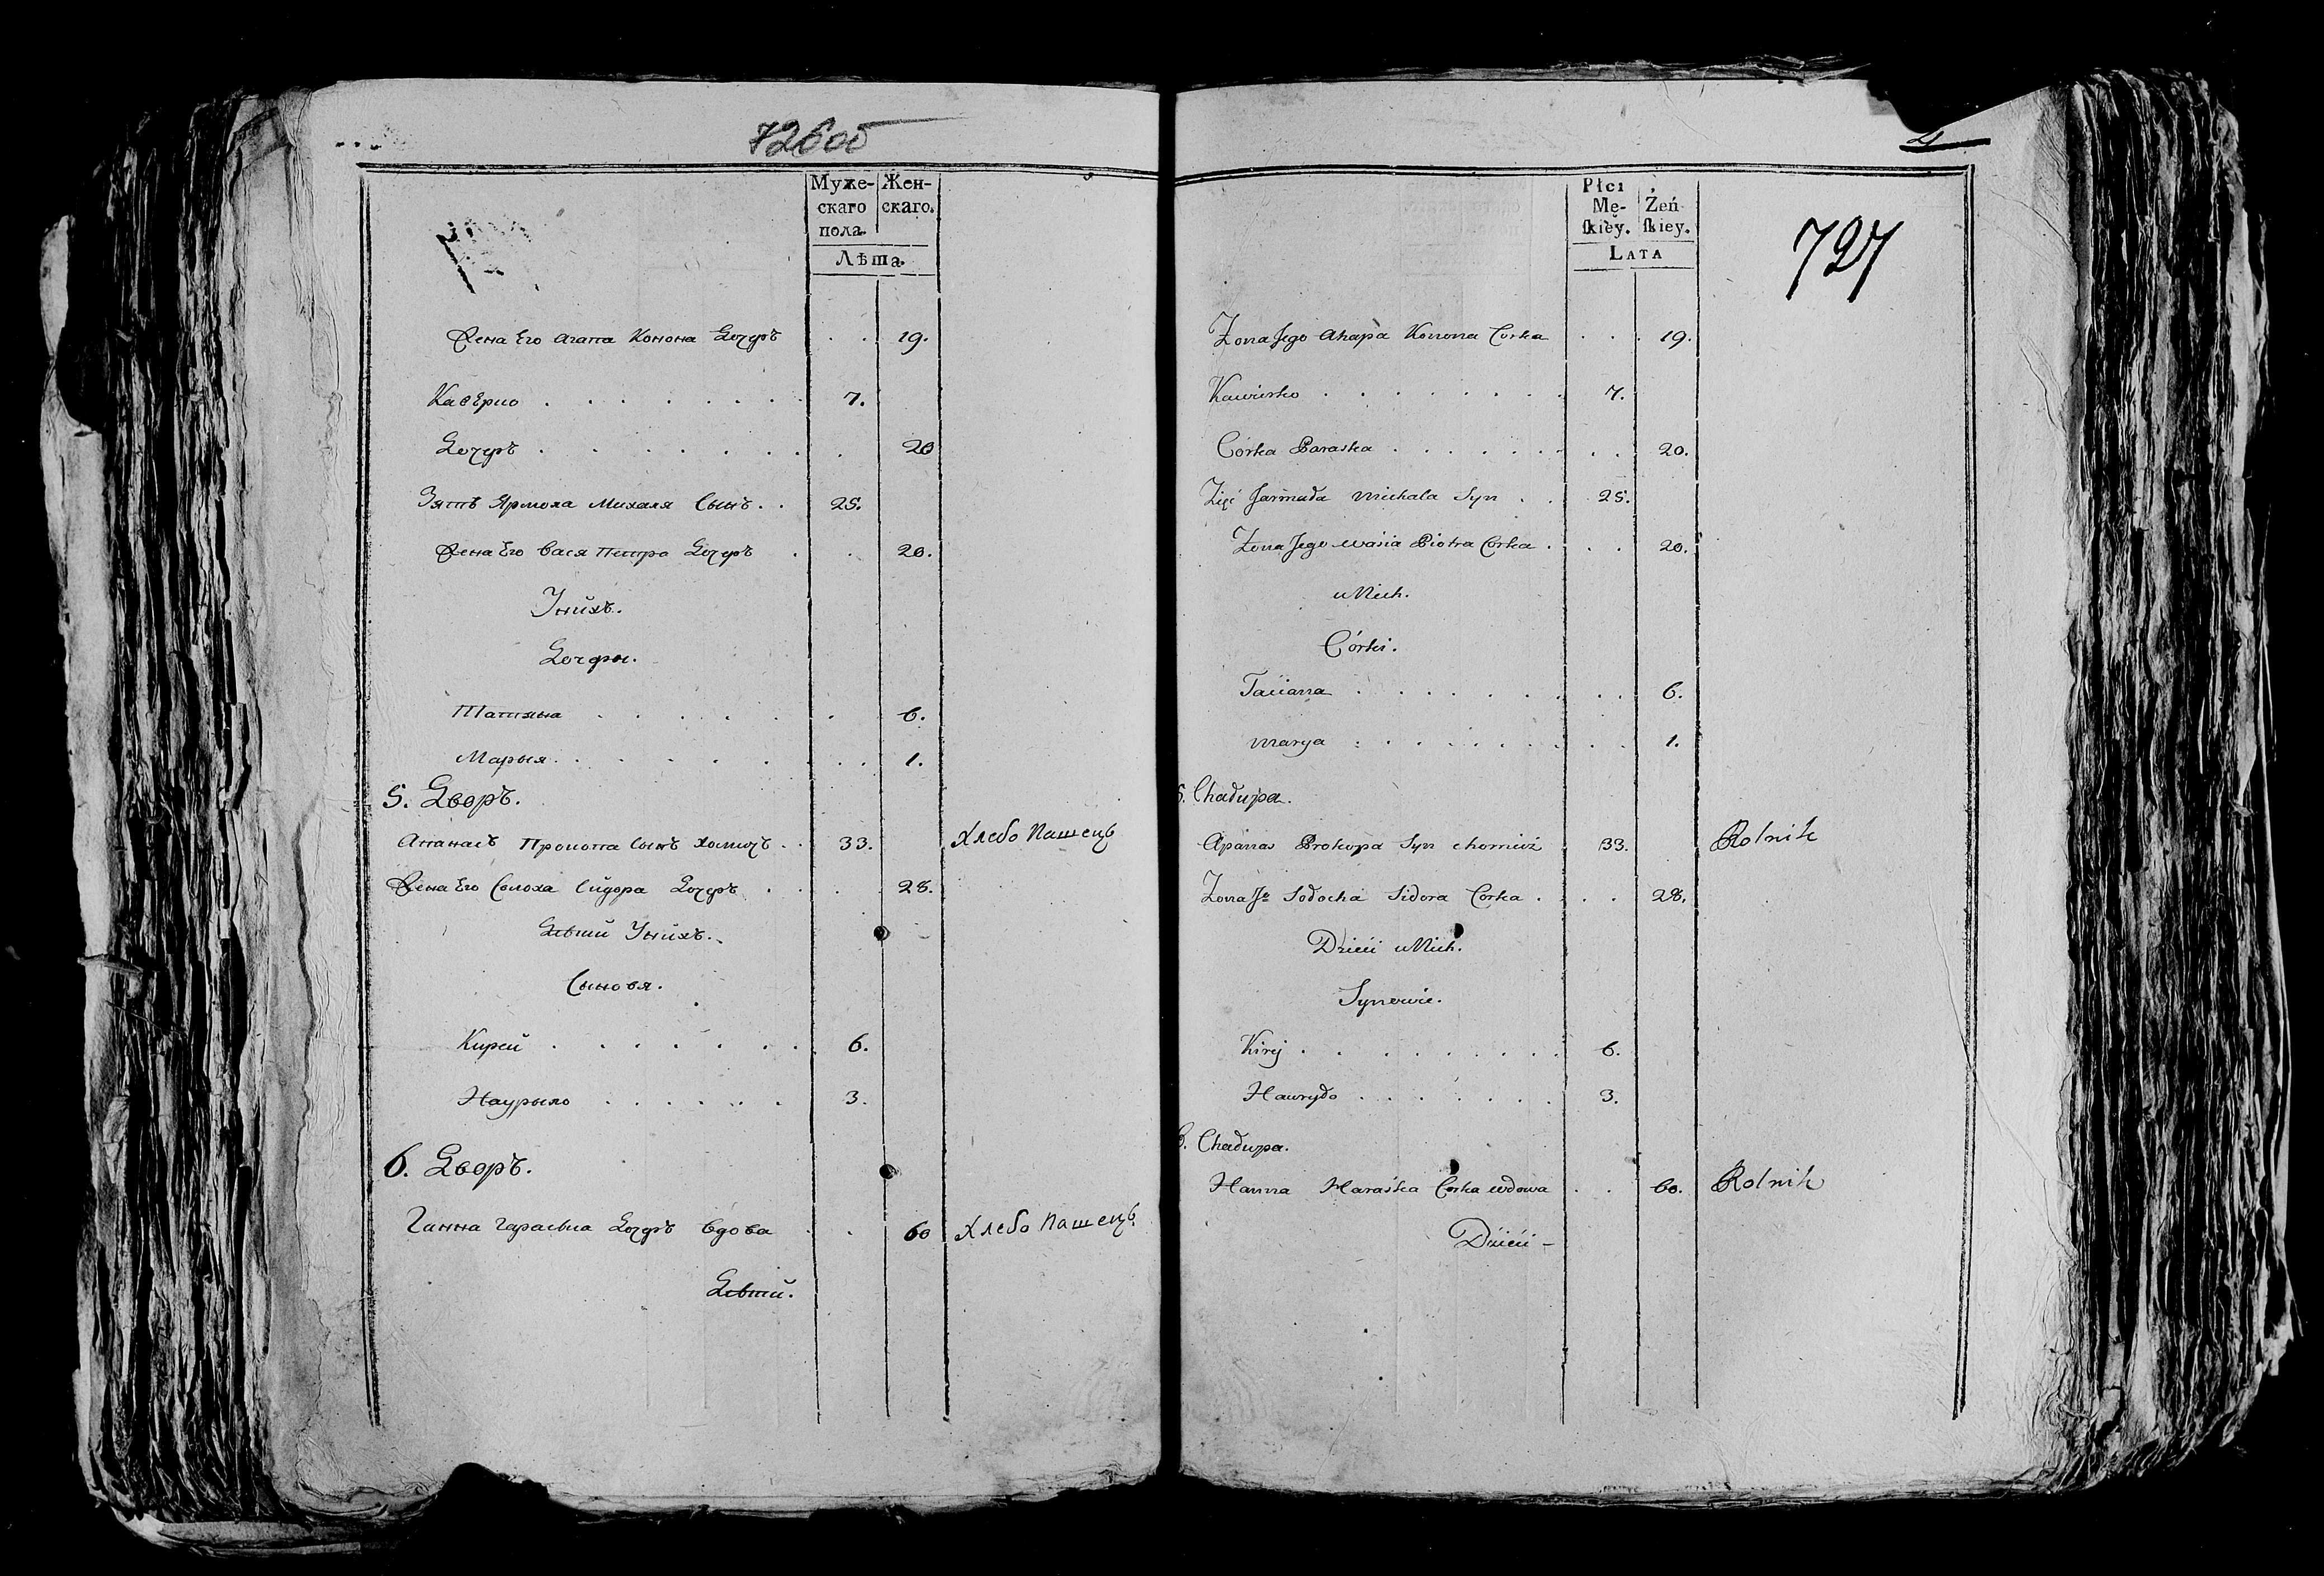 726 об
Муже- Жен-
скаго скаго.
пола.
Лѣта.
Жена Его Агапа Конона Дочерь . . 19.
Каверко . . . . . . . 7.
Дочерь . . . . . . . . 20
Зять Ярмола Михала Сынъ . . 25.
Жена Его Вася Петра Дочерь . . 20.
У нихъ.
Дочери.
Татяна . . . . . . 6.
Марыя . . . . . . . . 1.
5. Дворъ.
Апанасъ Прокопа Сынъ Хомичъ . . 33. Хлебо Пашецъ
Жена Его Солоха Сидора Дочерь . . . 28.
Дѣти У нихъ.
Сыновя.
Кирей . . . . . . . 6.
Наурыло . . . . . . 3.
6. Дворъ.
Ганна Гараська Дочерь Вдова . . 60 Хлебо Пашецъ
Дѣти.
4
727
Płci
Mę- Żeń
ſkiey. ſkiey.
LATA
Żona Jego Ahapa Konona Córka . . . 19.
Kawierko . . . . . . . . 7.
Córka Paraska . . . . . . . . 20.
Zięć Jarmoła Michała Syn . . 25.
Żona Jego Wasia Piotra Córka . . . 20.
u Nich.
Córki.
Taciana . . . . . . . . 6.
Marya . . . . . . . . . 1.
5. Chałupa.
Apanas Prokopa Syn Chomicz 33. Rolnik
Żona Jo Sołocha Sidora Córka . . . 28.
Dzieci u Nich.
Synowie.
Kirej . . . . . . . . . 6.
Hawryło . . . . . . . 3.
6. Chałupa.
Hanna Haraśka Córka wdowa . . 60. Rolnik
Dzieci –